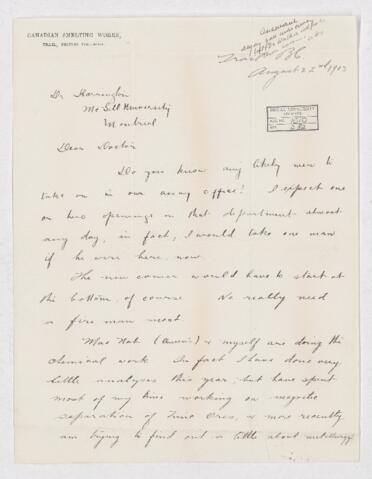 CANADIAN SMELTING WORKS,
TRAIL, BRITISH COLUMBIA.
Answered
Trail BC
August 22nd 1903
Dr Harrington
McGill University
Montreal
McGILL UNIVERSITY
ARCHIVES
ACC. NO.
REF.
Dear Doctor
Do you know any likely men to
take on in our assay office? I expect one
or two openings in that department almost
any day, in fact, I would take one man
if he were here, now.
The new comer would have to start at
the bottom, of course. We really need
a fire man most.
MacNab (Annie) & myself are doing the
chemical work. In fact I have done very
little analyses this year, but have spent
most of my time working on magnetic
separation of Zinc Ores, & more recently
am trying to find out a little about metallurgy